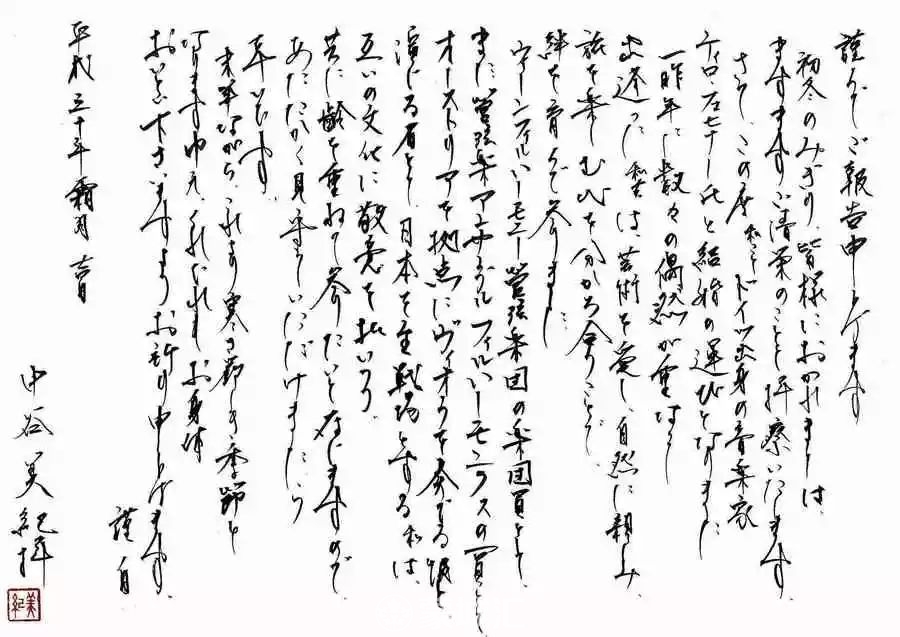 謹んでご報告申し上げます
初冬のみぎり、皆様におかれましては、
ますますご清栄のことと拝察いたします。
さて、この度 私ことドイツ出身の音楽家
ティロ・フェヒナー氏と結婚の運びとなりました。
一昨年に数々の偶然が重なり
出逢った私共は、芸術を愛し、自然に親しみ、
旅を楽しむ心を分かち合うことで、
絆を育んで参りました。
ウィーンフィルハーモニー管弦楽団の楽団員として、
また、管弦楽アンサンブルフィルハーモニクスの一員として
オーストリアを拠点にヴィオラを奏でる彼と、
演じる者として日本を主戦場とする私は、
互いの文化に敬意を払いつつ、
共に齢を重ねて参りたいと存じますので、
あたたかく見守っていただけましたら
幸いです。
末筆ながら、これより寒さ厳しき季節と
なりますゆえ、くれぐれもお身体
おいとい下さいますようお祈り申し上げます。
謹白
平成三十年霜月 吉日
中谷美紀 拝
美紀